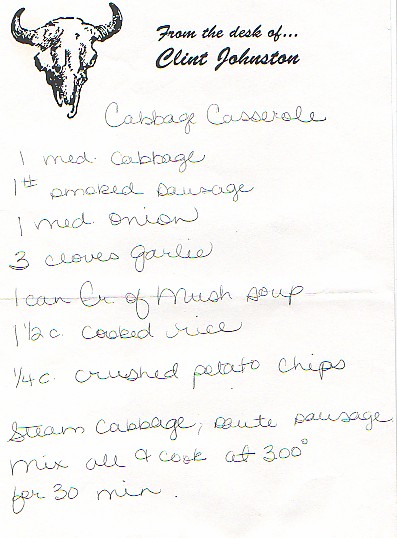 From the desk of...
Clint Johnston
Cabbage Casserole
1 med. cabbage
1# smoked sausage
1 med onion
3 cloves garlic
1 can Cr of Mush soup
1 1/2 c. cooked rice
1/4 c. crushed potato chips
Steam cabbage, saute sausage
Mix all & cook at 300°
for 30 min.